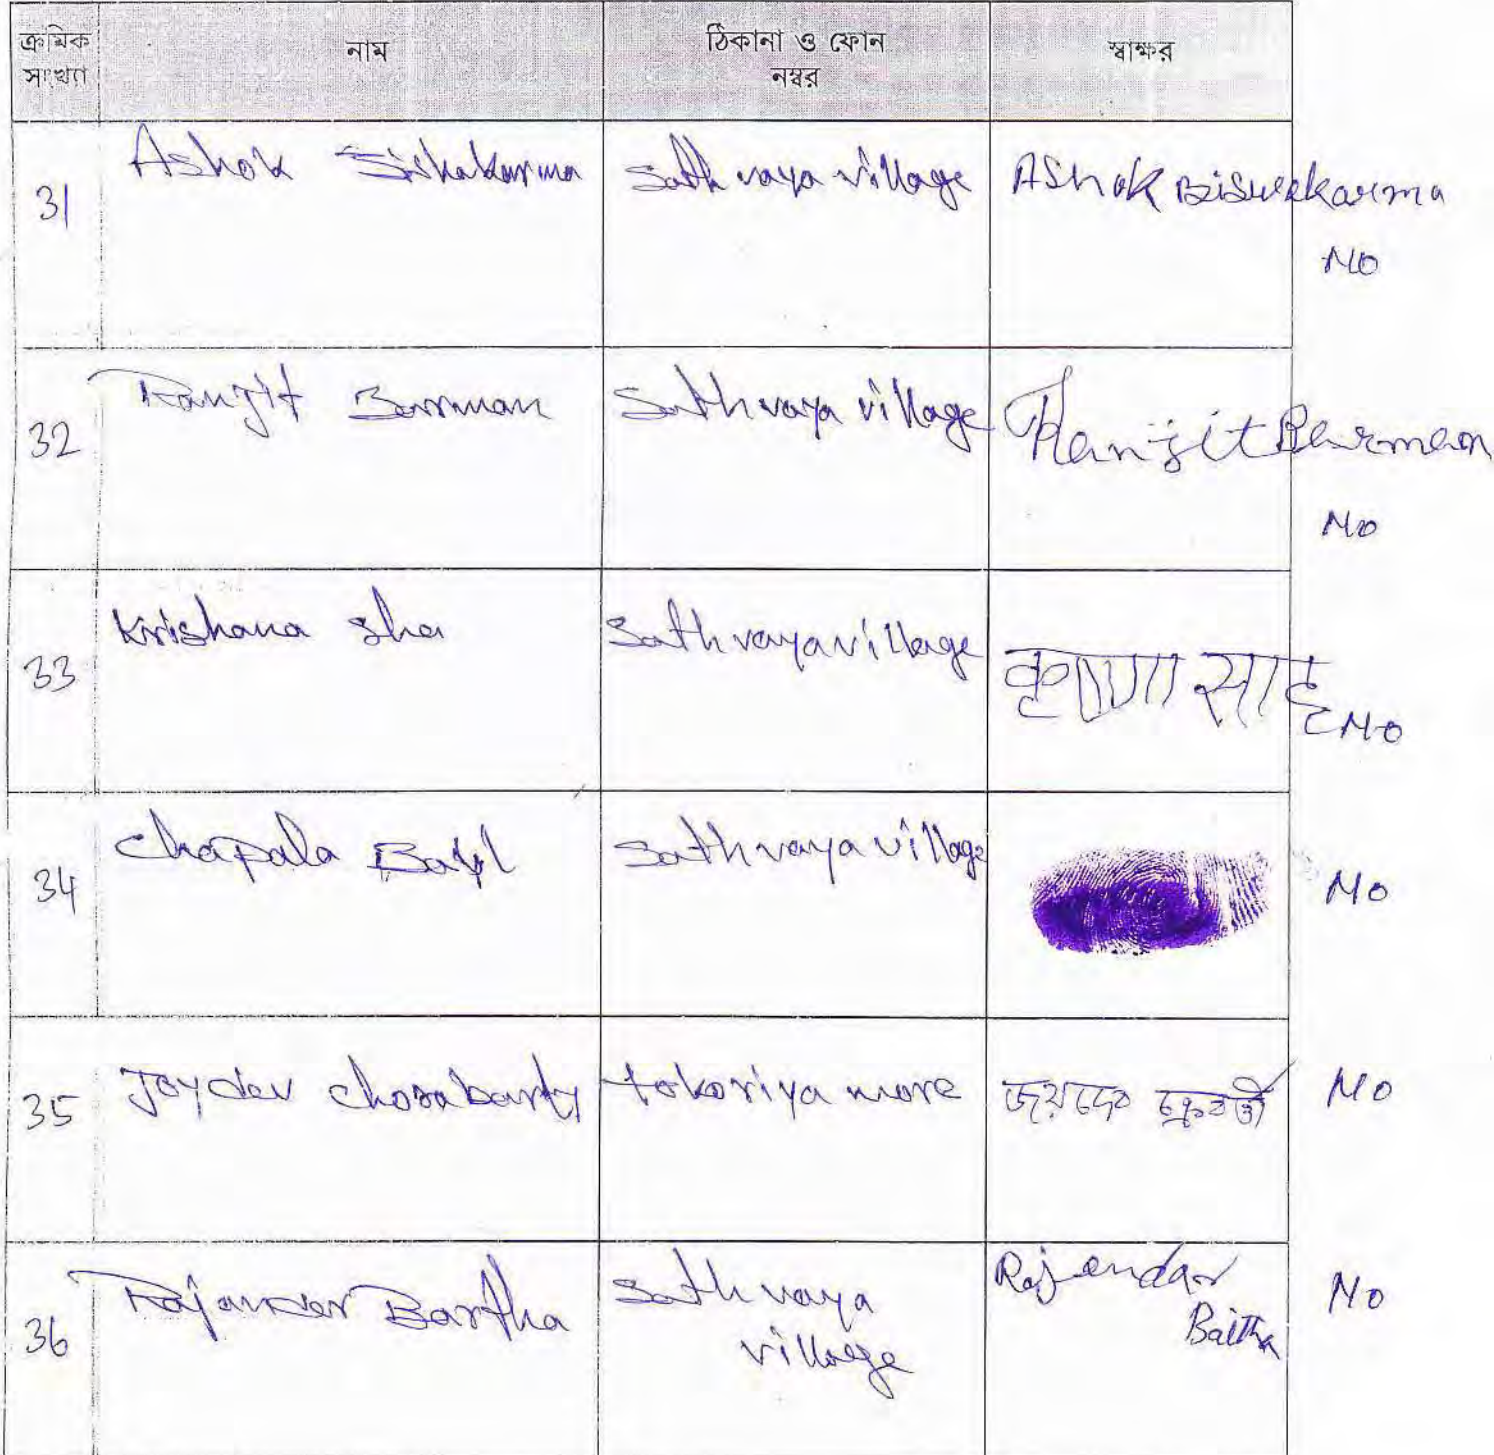 ক্রমিক সংখ্যা নাম ঠিকানা ও ফোন নম্বর স্বাক্ষর
31 Ashok Sishakarma Sathvaya village Ashok Biswakarma
NO
32 Ranjit Barman Sathvaya village Ranjit Barman
NO
33 Krishana Sha Sathvaya village कृष्णा साह NO
34 Chapala Sathvaya village NO
35 Joydev Chorabarty tokoriya more জয়দেব চক্রবর্তী NO
36 Rajander Baitha Sathvaya Rajendar NO
village Baitha